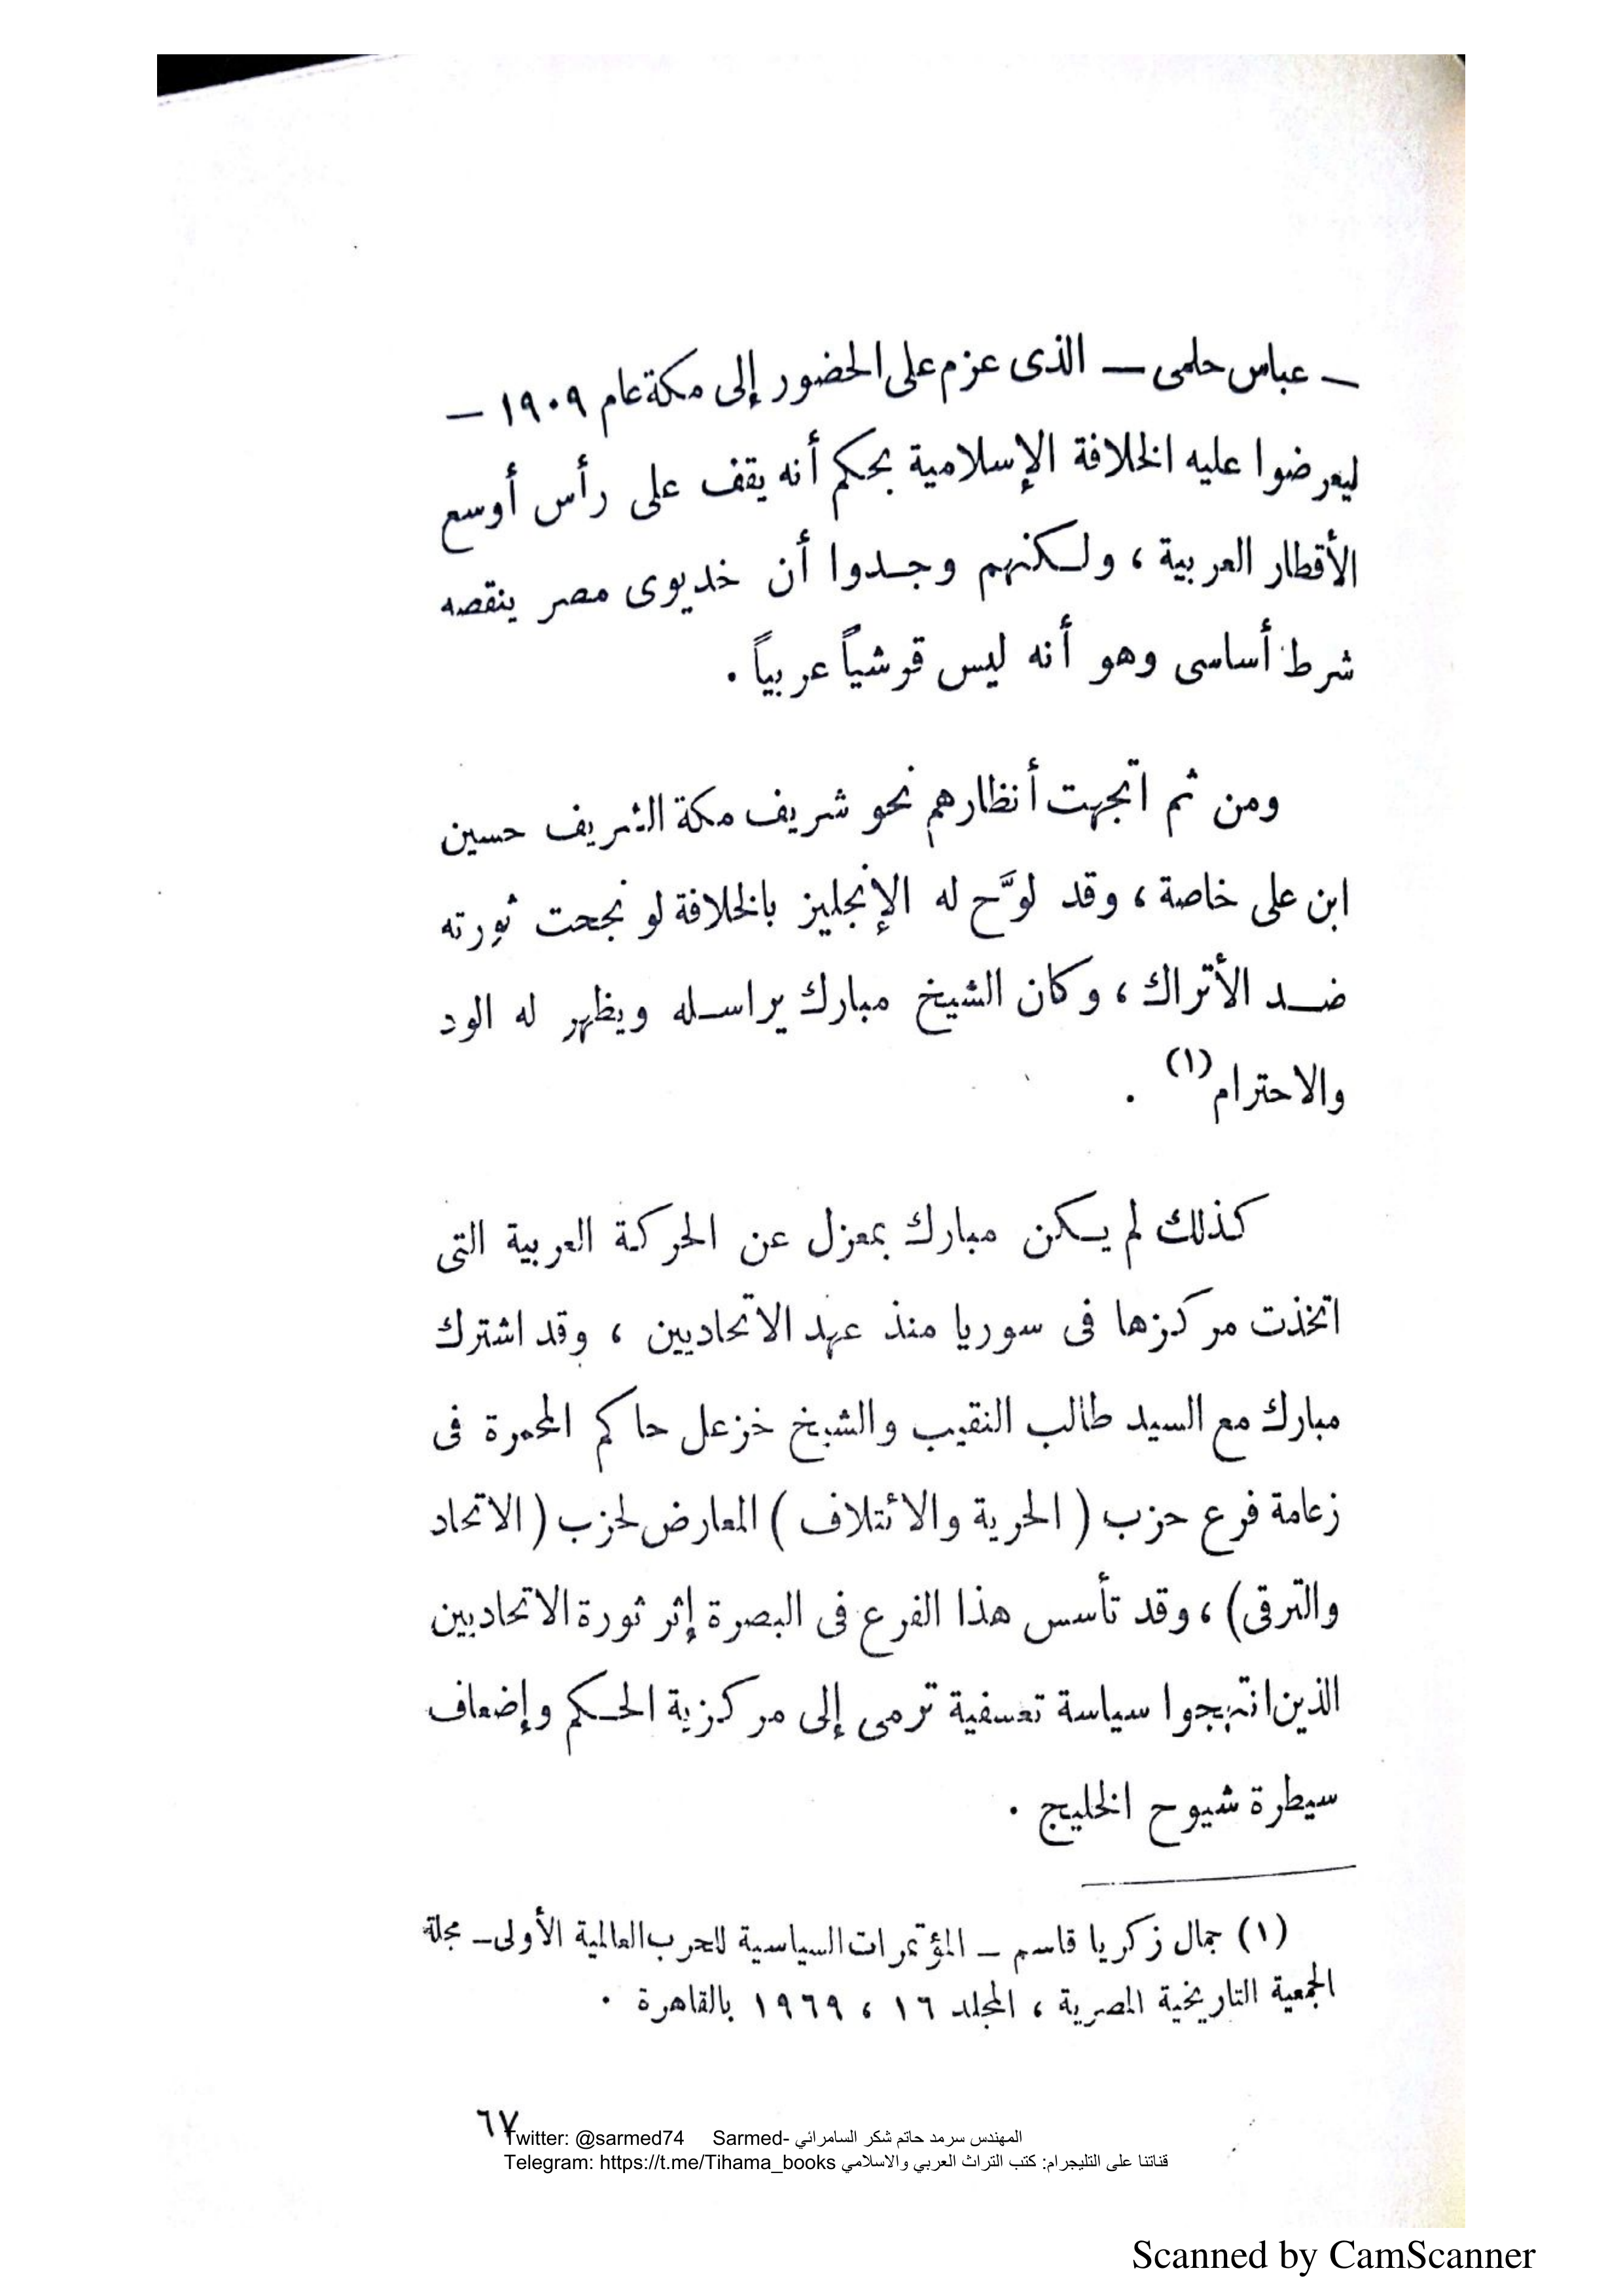 ــ عباس حلمى ــ الذى عزم على الحضور إلى مكة عام ١٩٠٩ ــ
ليعرضوا عليه الخلافة الإسلامية بحكم أنه يقف على رأس أوسع
الأقطار العربية ، ولـكنهم وجـدوا أن خديوى مصر ينقصه
شرط أساسى وهو أنه ليس قرشياً عربياً .
ومن ثم اتجهت أنظارهم نحو شريف مكة الشريف حسين
ابن على خاصة ، وقد لوَّح له الإنجليز بالخلافة لو نجحت ثورته
ضـد الأتراك ، وكان الشيخ مبارك يراسـله ويظهر له الود
والاحترام (١) .
كذلك لم يـكن مبارك بمعزل عن الحركة العربية التى
اتخذت مركزها فى سوريا منذ عهد الاتحاديين ، وقد اشترك
مبارك مع السيد طالب النقيب والشيخ خزعل حاكم المحمرة فى
زعامة فرع حزب ( الحرية والائتلاف ) المعارض لحزب ( الاتحاد
والترقى) ، وقد تأسس هذا الفرع فى البصرة إثر ثورة الاتحاديين
الذين انتهجوا سياسة تعسفية ترمى إلى مركزية الحـكم وإضعاف
سيطرة شيوح الخليج .
(١) جمال زكريا قاسم ــ المؤتمرات السياسية للحرب العالمية الأولى ــ مجلة
الجمعية التاريخية المصرية ، المجلد ١٦ ، ١٩٦٩ بالقاهرة .
٦٧
Twitter: @sarmed74 Sarmed- المهندس سرمد حاتم شكر السامرائي
Telegram: https://t.me/Tihama_books قناتنا على التليجرام: كتب التراث العربي والاسلامي
Scanned by CamScanner